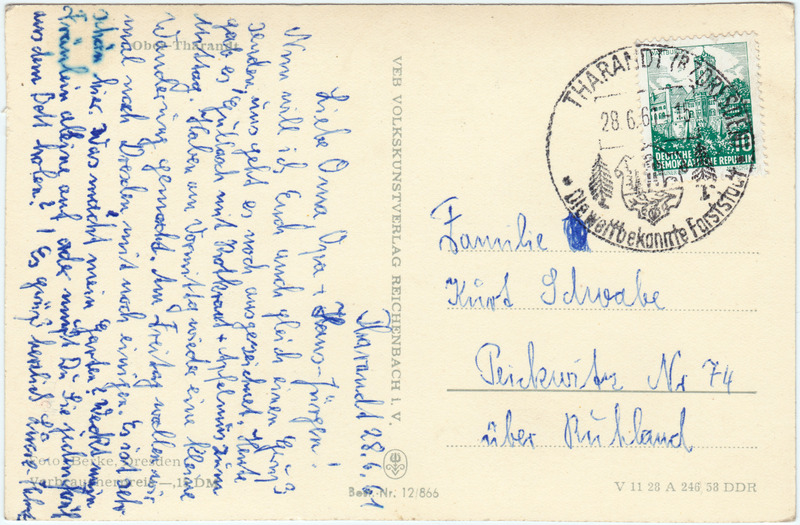 Ober Tharandt
Tharandt 28.6.61
Liebe Oma Opa + Hans-Jürgen!
Nun will ich Euch auch gleich einen Gruß
senden, uns geht es noch ausgezeichnet. Heute
gab es Gullasch mit Rotkraut + Apfelmus zum
Mittag. Haben am Vormittag wieder eine kleine
Wanderung gemacht. Am Freitag wollen wir
mal nach Dresden mit noch einigen. Es ist sehr
schön hier. Was macht mein Garten? Weckt mein
Fräulein alleine auf oder mußt Du Sie
aus dem Bett holen? ! Es grüßt herzlich
Foto: Berke, Dresden
Verbraucherpreis —,15 DM
VEB VOLKSKUNSTVERLAG REICHENBACH i. V.
Best.-Nr. 12/866
THARANDT (BZ DRESDEN)
28.6.61 -15
Die weltbekannte Forststadt
10
DEUTSCHE
DEMOKRATISCHE REPUBLIK
Familie
Kurt Schwabe
Peickwitz Nr 74
über Ruhland
V 11 28 A 246 58 DDR